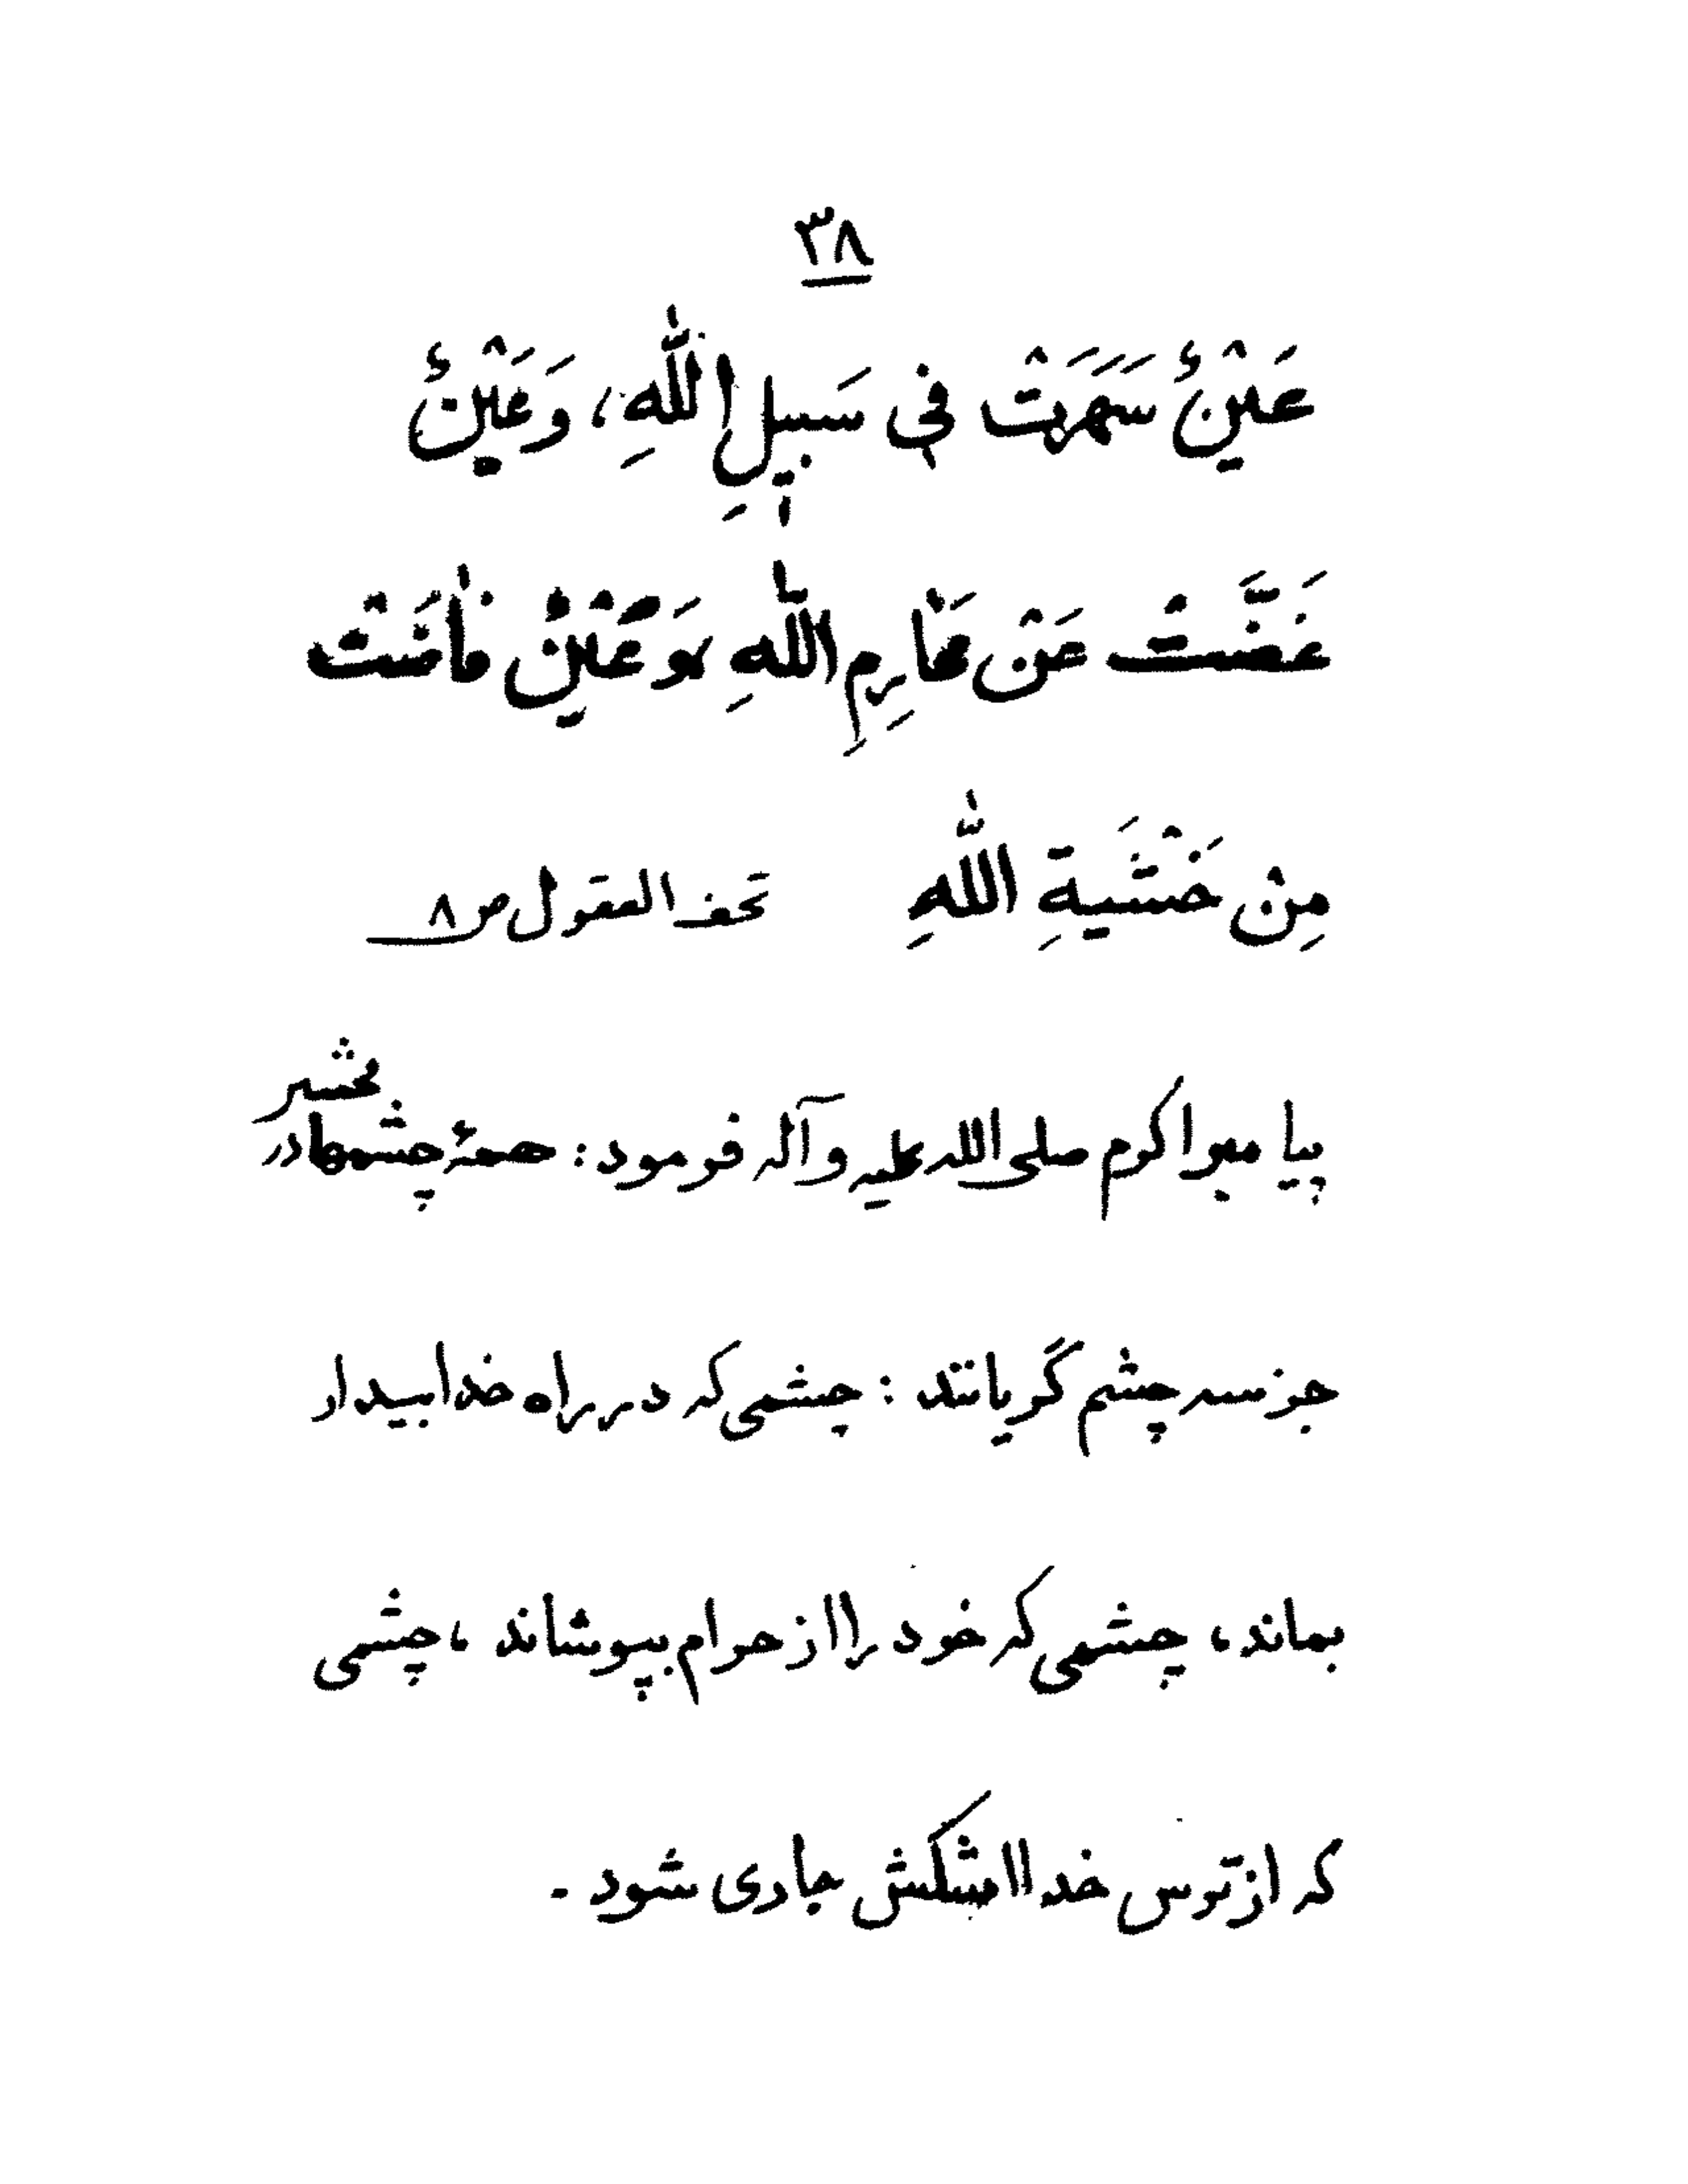 ۳۸
عَيْنٌ سَهَرَتْ فِي سَبِيلِ اللّٰهِ، وَعَيْنٌ
غَضَّتْ عَنْ مَحَارِمِ اللّٰهِ، وَعَيْنٌ فٰاضَتْ
مِنْ خَشْيَةِ اللّٰهِ تحف العقول ص ۸
پیامبر اکرم صلی الله علیه و آله فرمود: همهٔ چشمها در محشر
جز سه چشم گریانند: چشمی که در راه خدا بیدار
بماند، چشمی که خود را از حرام بپوشاند، چشمی
که از ترس خدا اشکش جاری شود.